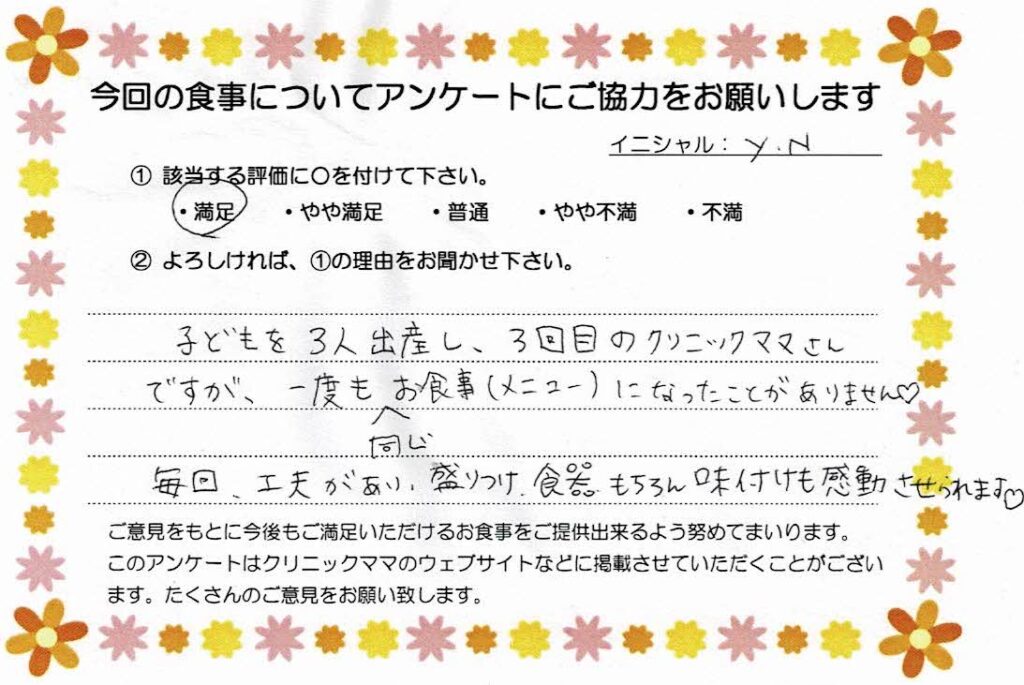 今回の食事についてアンケートにご協力をお願いします
イニシャル： Y.N
① 該当する評価に〇を付けて下さい。
・満足 ・やや満足 ・普通 ・やや不満 ・不満
② よろしければ、①の理由をお聞かせ下さい。
子どもを3人出産し、3回目のクリニックママさん
ですが、一度もお食事(メニュー)になったことがありません♡
同じ
毎回、工夫があり、盛りつけ、食器、もちろん味付けも感動させられます♡
ご意見をもとに今後もご満足いただけるお食事をご提供出来るよう努めてまいります。
このアンケートはクリニックママのウェブサイトなどに掲載させていただくことがござい
ます。たくさんのご意見をお願い致します。